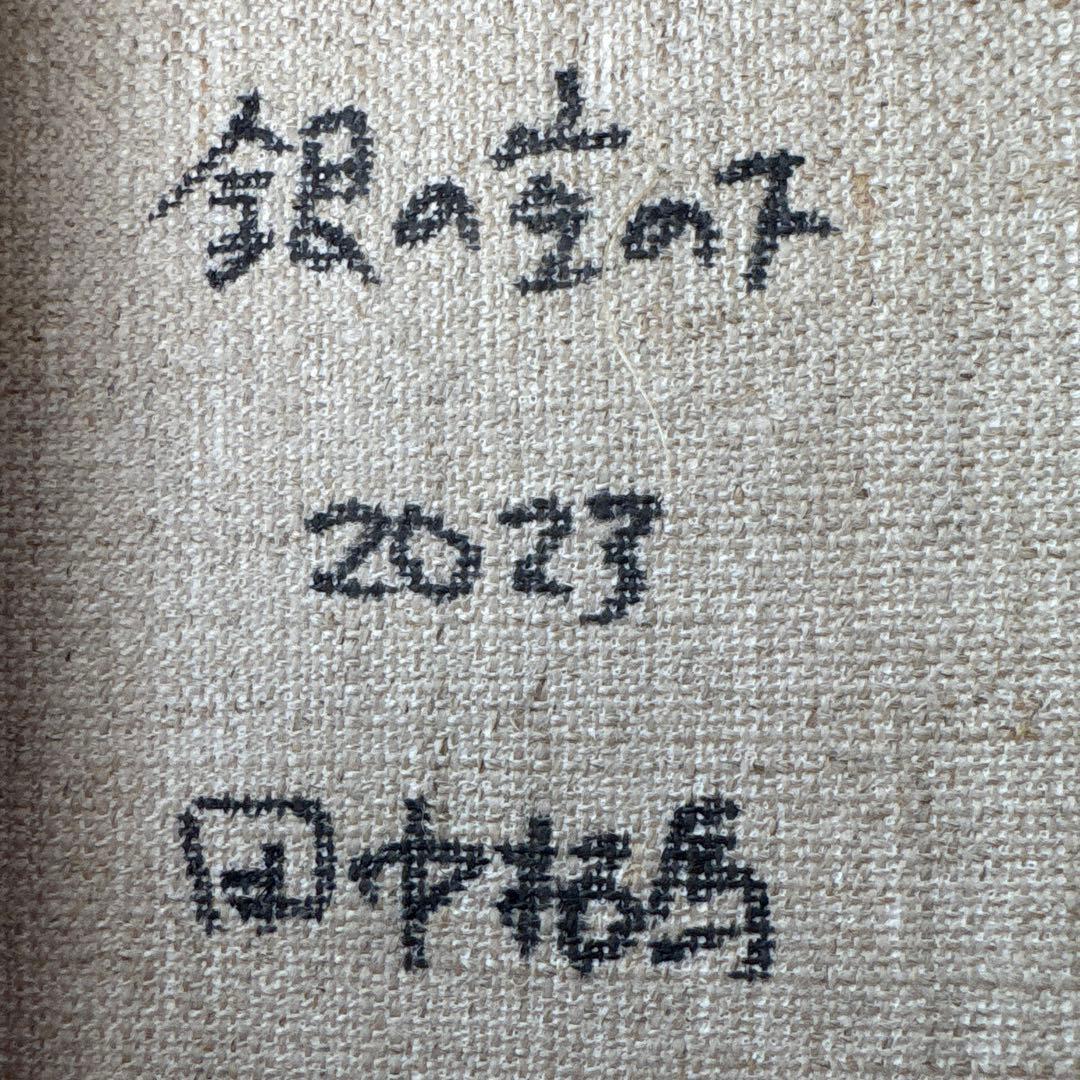 銀の空の下
2023
田中拓馬